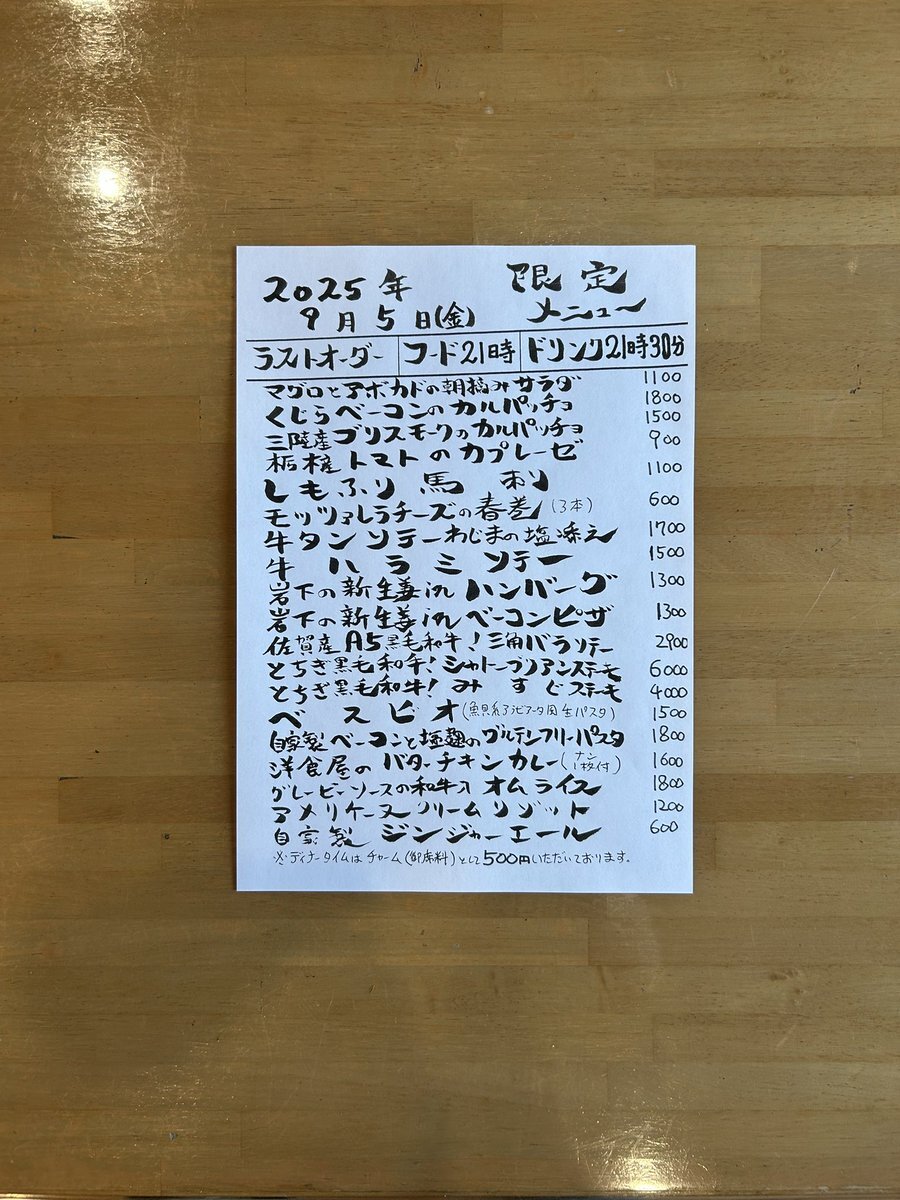 2025年 限定
9月5日(金) メニュー
ラストオーダー フード21時 ドリンク21時30分
マグロとアボカドの朝摘みサラダ 1100
くじらベーコンのカルパッチョ 1800
三陸産ブリスモークのカルパッチョ 1500
栃木産トマトのカプレーゼ 900
しもふり馬刺 1100
モッツァレラチーズの春巻(3本) 600
牛タンソテーわじまの塩添え 1700
牛ハラミソテー 1500
岩下の新生姜inハンバーグ 1300
岩下の新生姜inベーコンピザ 1300
佐賀産A5黒毛和牛!三角バラソテー 2900
とちぎ黒毛和牛!シャトーブリアンステーキ 6000
とちぎ黒毛和牛!みすじステーキ 4000
ベスビオ(魚貝系アラビアータ風生パスタ) 1500
自家製ベーコンと塩麹のグルテンフリーパスタ 1800
洋食屋のバターチキンカレー(ナン1枚付) 1600
グレービーソースの和牛入オムライス 1800
アメリケーヌクリームリゾット 1200
自家製ジンジャーエール 600
※ディナータイムはチャーム(御席料)として500円いただいております。